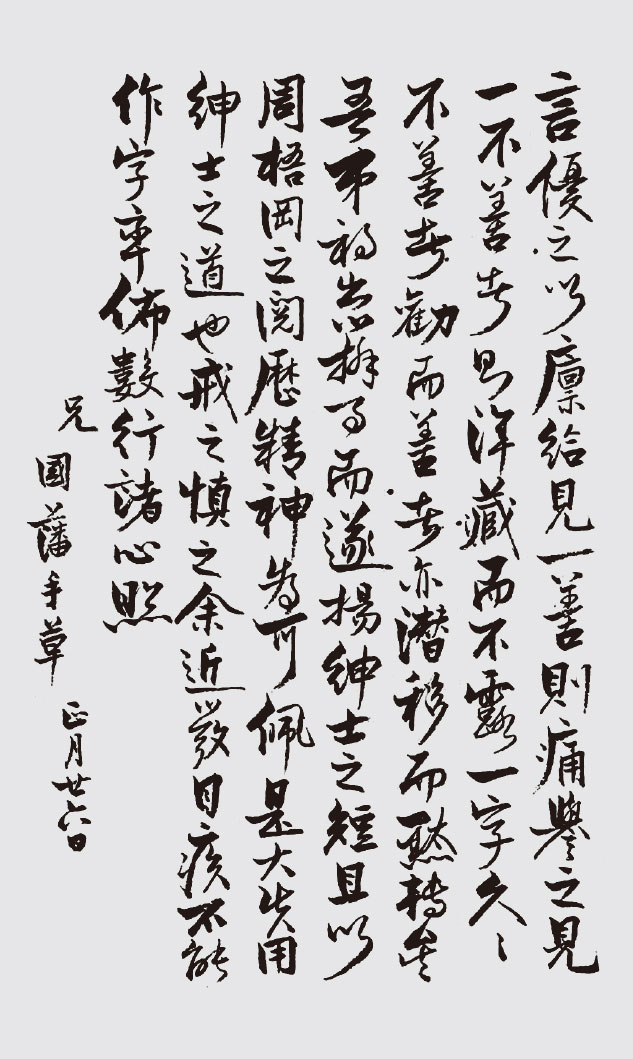 言優之以廩給見一善則痛譽之見
一不善者則渾藏而不露一字久〻
不善者勸而善者亦潛移而默轉矣
吾弟初出辦事而遂揚紳士之短且以
周梧岡之閱歷精神為可佩是大失用
紳士之道也戒之慎之余近發目疾不能
作字率佈數行諸心照
兄
國藩手草
正月廿六日